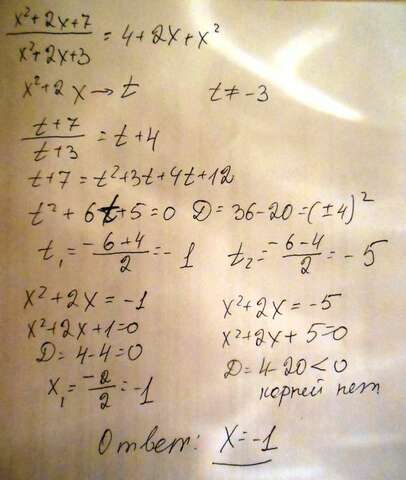 x²+2x+7 / x²+2x+3 = 4+2x+x²
x²+2x → t t ≠ -3
t+7 / t+3 = t+4
t+7 = t²+3t+4t+12
t²+6t+5=0 D=36-20=(±4)²
t₁= -6+4 / 2 = -1 t₂= -6-4 / 2 = -5
x²+2x=-1 x²+2x=-5
x²+2x+1=0 x²+2x+5=0
D=4-4=0 D=4-20<0
x₁= -2 / 2 = -1 корней нет
Ответ: x=-1